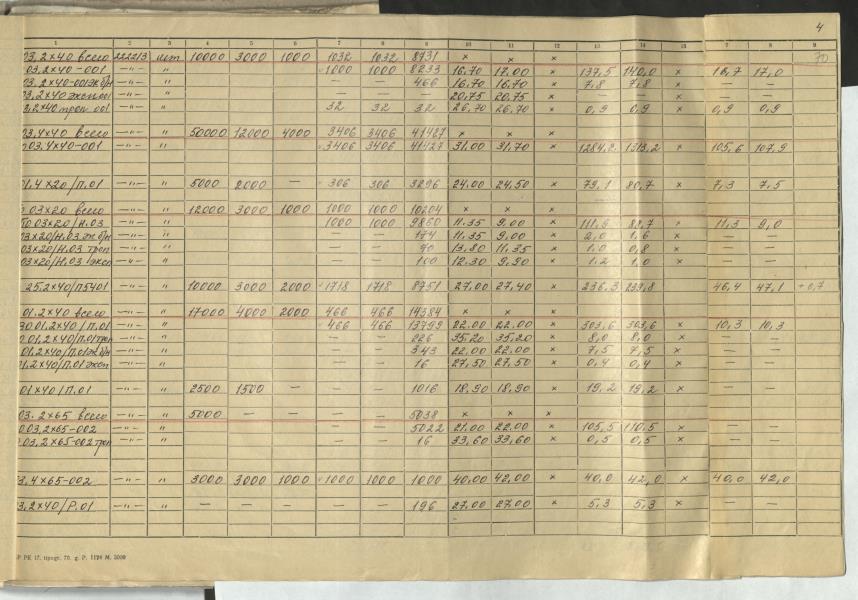 4
2 3 4 5 6 7 8 9 10 11 12 13 14 15 7 8 9
03.2×40 всего 222213 шт 10000 3000 1000 1032 1032 8731 × × × 70
03.2×40-001 —〃— 〃 1000 1000 8233 16.70 17.00 × 137,5 140,0 × 16,7 17,0
03.2×40-001эк б/н —〃— 〃 — — 466 16.70 16.70 × 7,8 7,8 × — —
03.2×40 эксп 001 —〃— 〃 — — — 20,75 20,75 × — — × — —
3.2×40 троп 001 —〃— 〃 32 32 32 26.70 26.70 × 0,9 0,9 × 0,9 0,9
03.4×40 всего —〃— 〃 50000 12000 4000 3406 3406 41427 × × ×
03.4×40-001 —〃— 〃 3406 3406 41427 31.00 31,70 × 1284,2 1313,2 × 105,6 107,9
01.4×20/П.01 —〃— 〃 5000 2000 — 306 306 3296 24.00 24,50 × 79,1 80,7 × 7,3 7,5
03×20 всего —〃— 〃 12000 3000 1000 1000 1000 10204 × × ×
03×20/Н.03 —〃— 〃 1000 1000 9860 11.35 9.00 × 111,9 88,7 × 11,3 9,0
03×20/Н.03 эк б/н —〃— 〃 — — 174 11.35 9,00 × 2,0 1,6 × — —
03×20/Н.03 троп —〃— 〃 — — 70 13.80 11.35 × 1.0 0,8 × — —
03×20/Н.03 эксп —〃— 〃 — — 100 12.30 9,90 × 1.2 1.0 × — —
25.2×40/П5401 —〃— 〃 10000 3000 2000 1718 1718 8751 27,00 27,40 × 236,3 239,8 46,4 47,1 +0,7
01.2×40 всего —〃— 〃 17000 4000 2000 466 466 14384 × × ×
01.2×40/П.01 —〃— 〃 466 466 13799 22.00 22.00 × 303,6 303,6 × 10,3 10,3
01.2×40/П.01троп —〃— 〃 — — 226 35.20 35,20 × 8,0 8,0 × — —
01.2×40/П.01эк б/н —〃— 〃 — — 343 22.00 22.00 × 7,5 7,5 × — —
01.2×40/П.01 эксп —〃— 〃 — — 16 27,50 27,50 × 0,4 0,4 × — —
01×40/П.01 —〃— 〃 2500 1500 — — — 1016 18,90 18,90 × 19,2 19,2 × — —
03.2×65 всего —〃— 〃 5000 — — — — 5038 × × ×
03,2×65-002 —〃— 〃 — — 5022 21.00 22.00 × 105,5 110,5 × — —
03,2×65-002троп —〃— 〃 — — 16 33,60 33,60 × 0,5 0,5 × — —
3.4×65-002 —〃— 〃 3000 3000 1000 1000 1000 1000 40,00 42,00 × 40,0 42,0 × 40,0 42,0
3.2×40/Р.01 —〃— 〃 — — — — — 196 27.00 27.00 × 5,3 5,3 × — —
Р РЕ 17. tipogr. 76. g. P. 1124 M. 5000